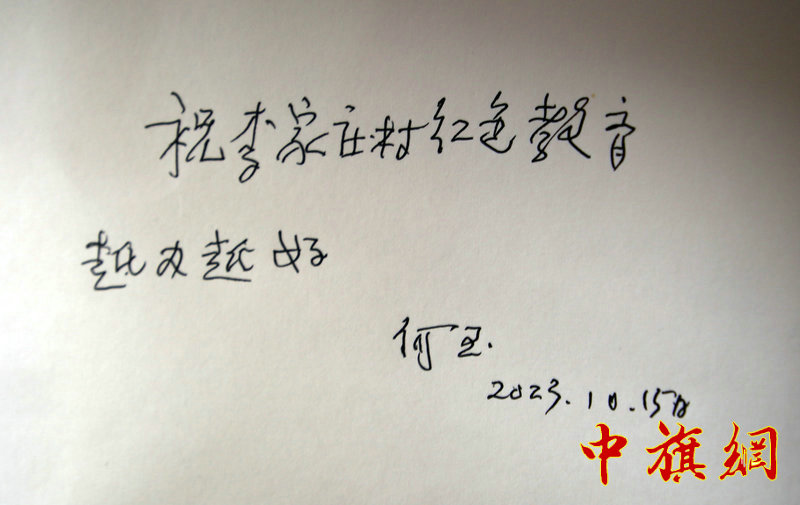 祝李家庄村红色教育
越办越好
何玉.
2023.10.15日
中旗網